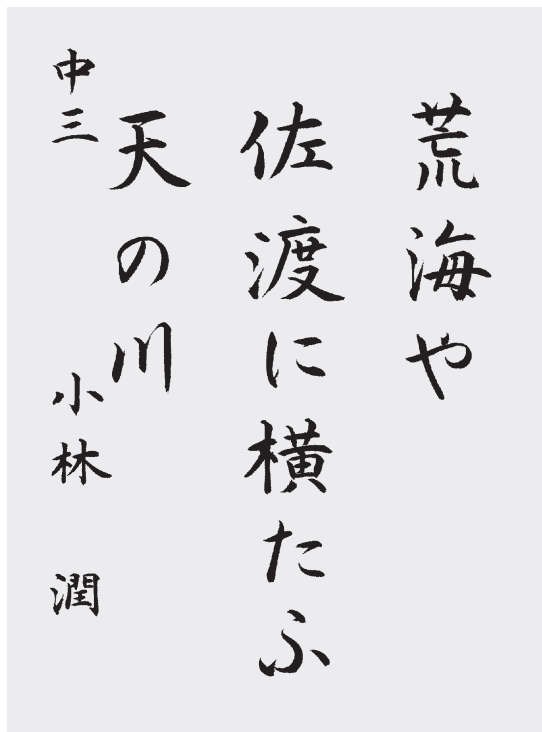 荒海や
佐渡に横たふ
天の川
中三 小林 潤